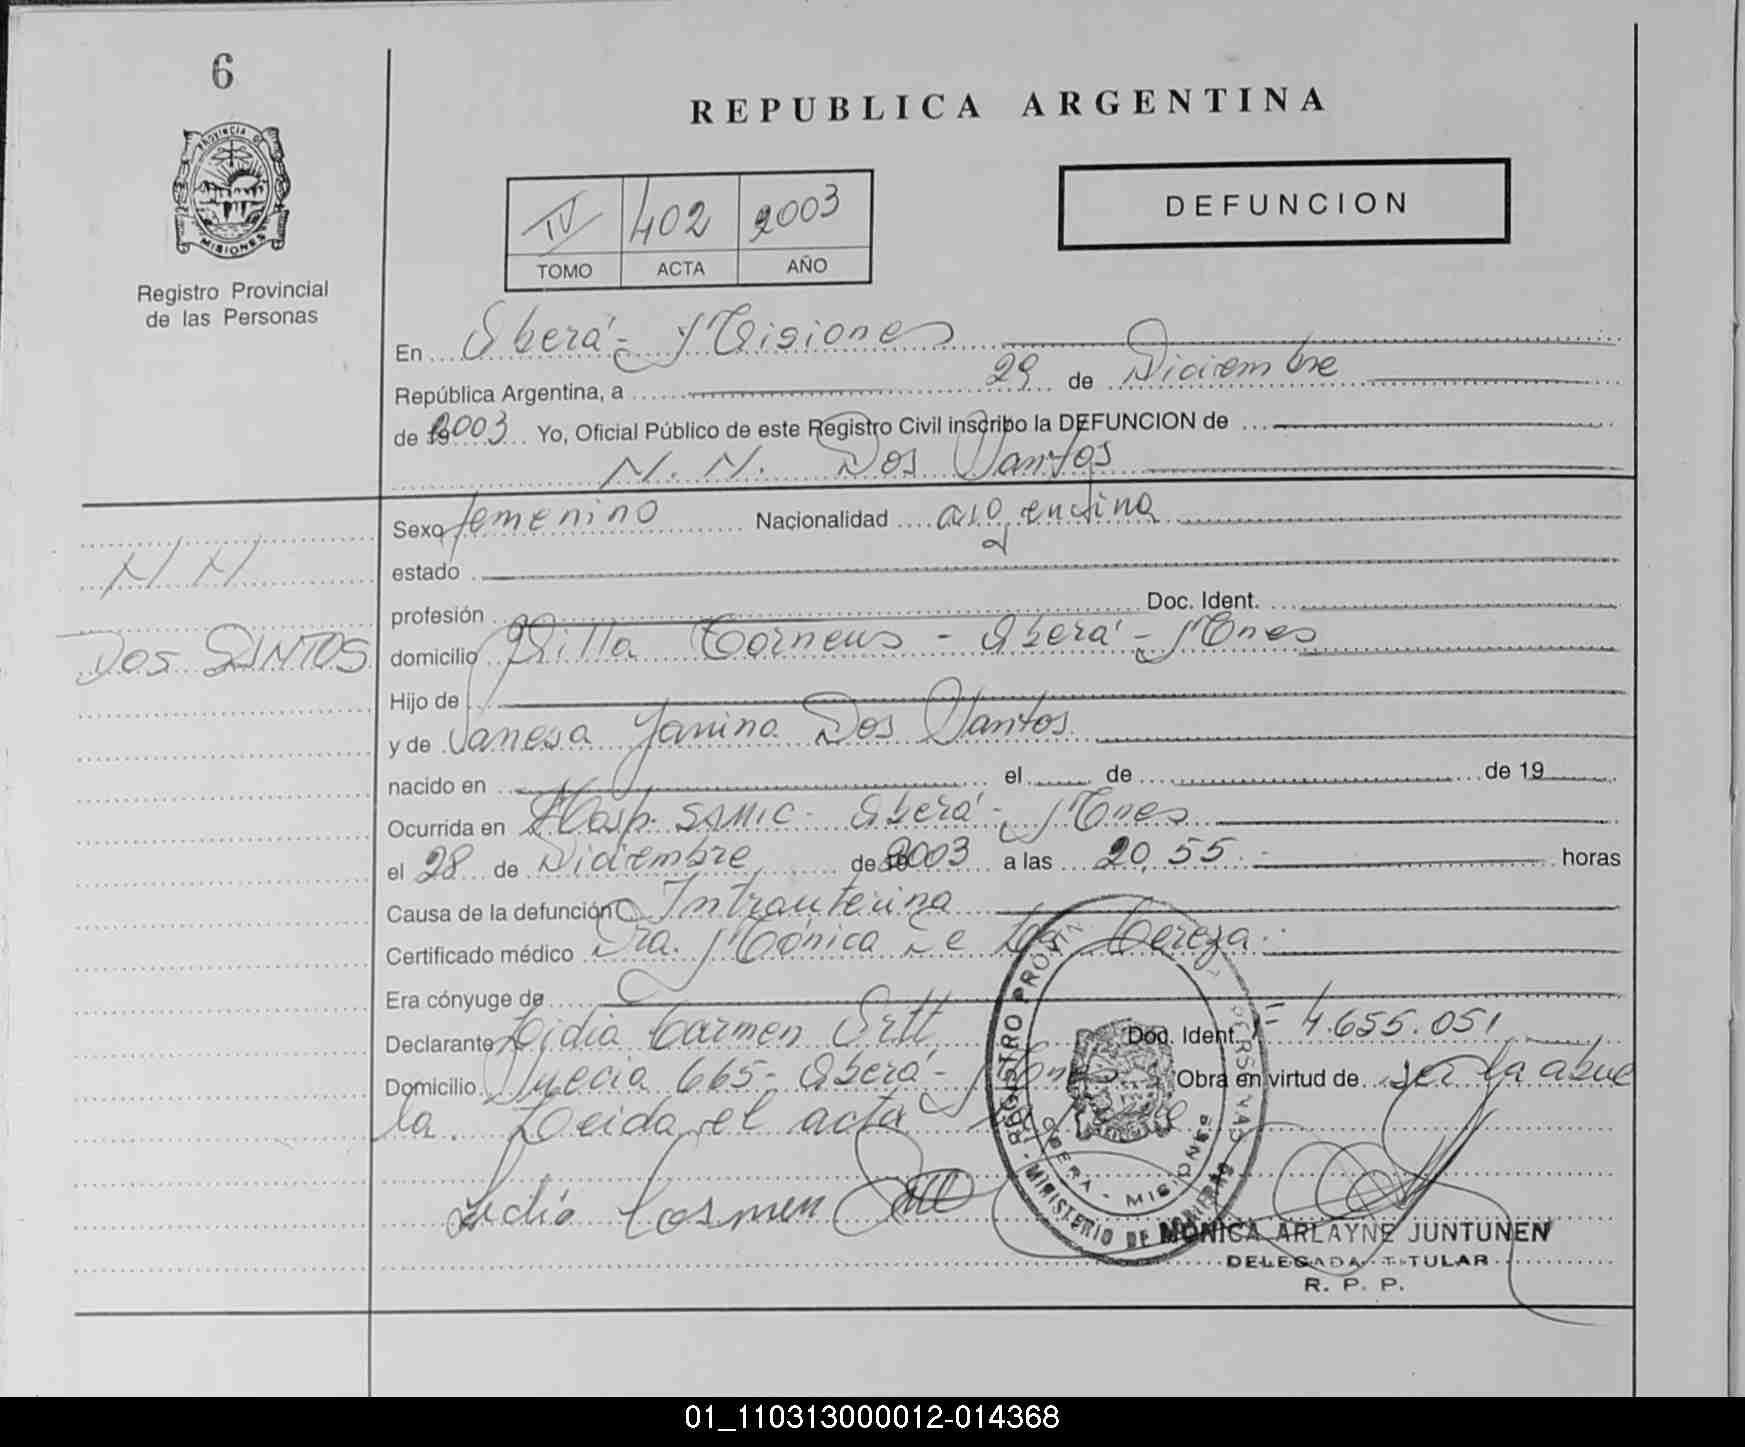 6
PROVINCIA DE
MISIONES
Registro Provincial
de las Personas
REPUBLICA ARGENTINA
IV 402 2003
TOMO ACTA AÑO
DEFUNCION
En Oberá - Misiones
República Argentina, a 29 de Diciembre
de 2003 Yo, Oficial Público de este Registro Civil inscribo la DEFUNCION de
N. N. Dos Santos
N N
DOS SANTOS
Sexo femenino Nacionalidad argentina
estado
profesión Doc. Ident.
domicilio Villa Torneus - Oberá - Mnes
Hijo de
y de Vanesa Yanina Dos Santos
nacido en el de de 19
Ocurrida en Hosp. SAMIC - Oberá - Mnes
el 28 de Diciembre de 2003 a las 20,55 horas
Causa de la defunción Intrauterina
Certificado médico Dra. Mónica De La Cereza
Era cónyuge de
Declarante Lidia Carmen Ortt Doc. Ident. 4.655.051
Domicilio Suecia 665 - Oberá - Mnes Obra en virtud de ser la abue
la. Leida el acta
Lidia Carmen Ortt
REGISTRO PROVIN PERSONAS
MINISTERIO DE
OBERA - MISIONES
MONICA ARLAYNE JUNTUNEN
DELEGADA TITULAR
R. P. P.
01_110313000012-014368